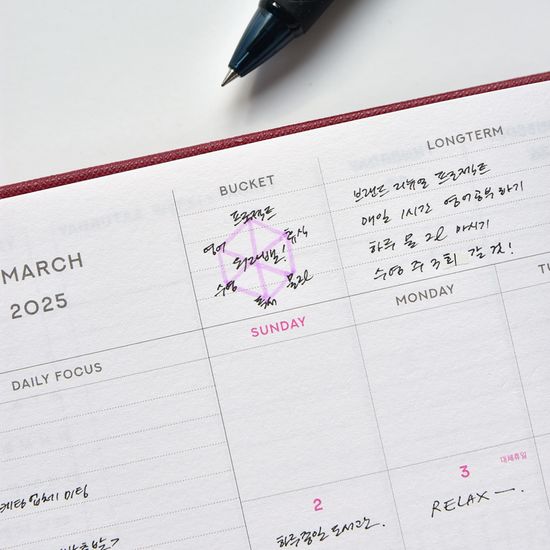 BUCKET
LONGTERM
프로젝트
영어
휴식
워라밸!
수영
물2L
독서
브랜드 리뉴얼 프로젝트
매일 1시간 영어공부 하기
하루 물 2L 마시기
수영 주 3회 갈 것!
MARCH
2025
SUNDAY
MONDAY
DAILY FOCUS
업체 미팅
2
하루종일 도서관.
3
대체휴일
RELAX